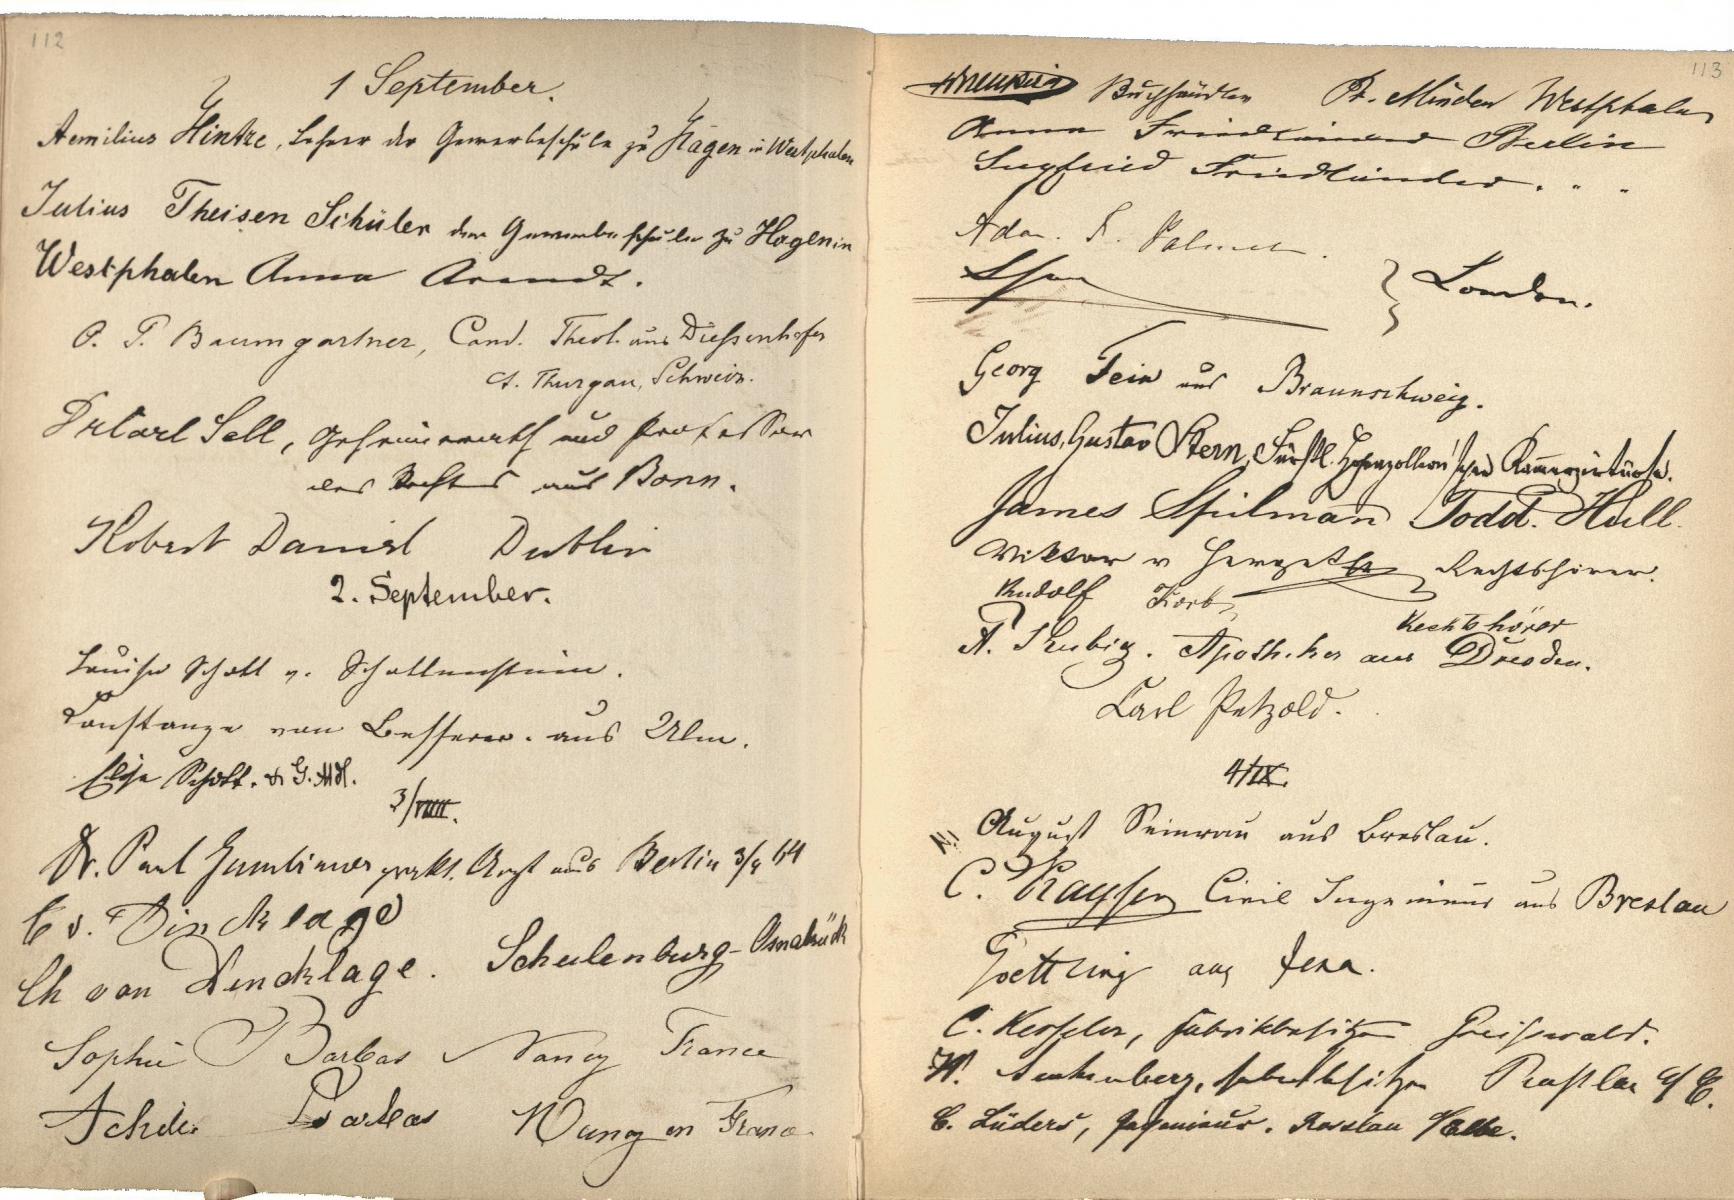 112
1 September.
Aemilius Hintze, Lehrer der Gewerbeschule zu Hagen in Westphalen
Julius Theisen Schüler der Gewerbeschule zu Hagen in
Westphalen Anna Arendt.
P. Baumgartner, Cand. Theol. aus Diessenhofen
Ct. Thurgau, Schweiz.
Dr Carl Sell, Geheimerath und Professor
des Rechtes aus Bonn.
Robert Daniel Dublin
2. September.
Louise Schott v. Schottenstein.
Constanze von Besserer. aus Ulm.
Elise Schott.
3/VIIII.
Dr. Paul prakt. Arzt aus Berlin 3/9 64
E v. Dincklage
Ch von Dincklage. Schulenburg-Osnabrück
Sophie Barbas Nancy France
Barbas Nancy en France
113
Buchhändler Pr. Minden Westphalen
Anna Friedländer Berlin
Siegfried Friedländer. " "
Ada. Palmer.
} London.
Georg Fein aus Braunschweig.
Julius, Gustav Stern, Fürstl. Hohenzollern'scher Kammervirtuose.
James Spilman Todd. Hull.
Viktor v Rechtshörer.
Rudolf Korb
Rechtshörer
A. Apotheker aus Dresden.
Carl Petzold.
4/IX.
August aus Breslau.
C. Kayser Civil Ingenieur aus Breslau
Goettling aus Jena.
C. Kessler, Fabrikbesitzer Greifswald.
W. Fabrikbesitzer Rosslau a/E.
C. Lüders, Ingenieur. Rosslau a/Elbe.